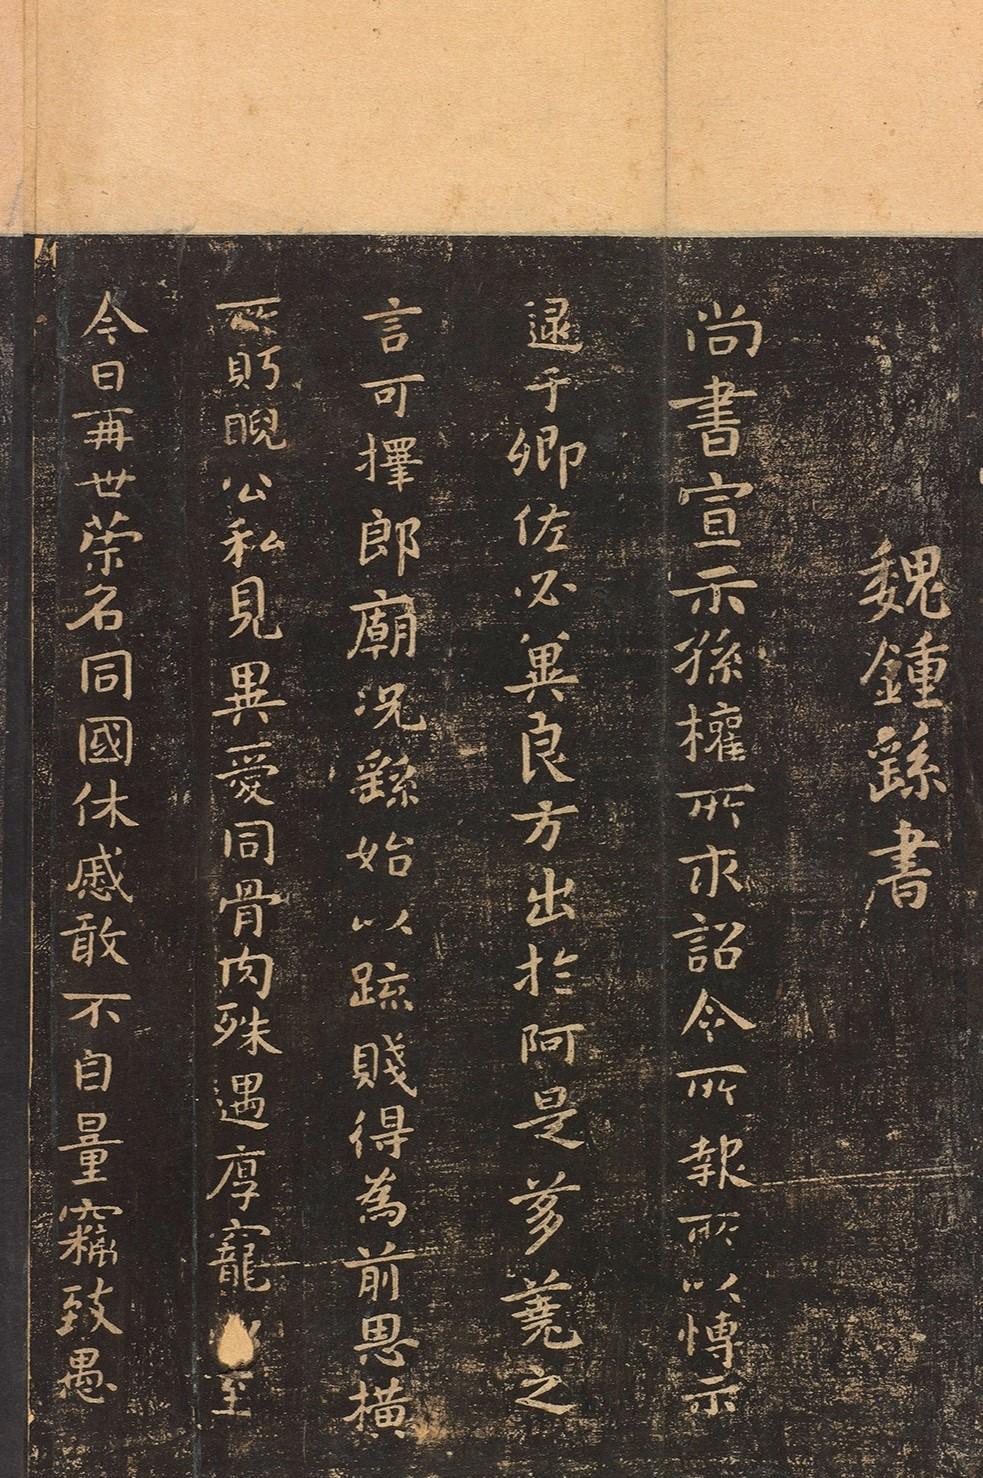 魏鍾繇書
尚書宣示孫權所求詔令所報所以博示
逮于卿佐必異良方出於阿是芻蕘之
言可擇郎廟況繇始以疏賤得為前恩橫
所眄睨公私見異愛同骨肉殊遇厚寵至
今日再世榮名同國休慼敢不自量竊致愚